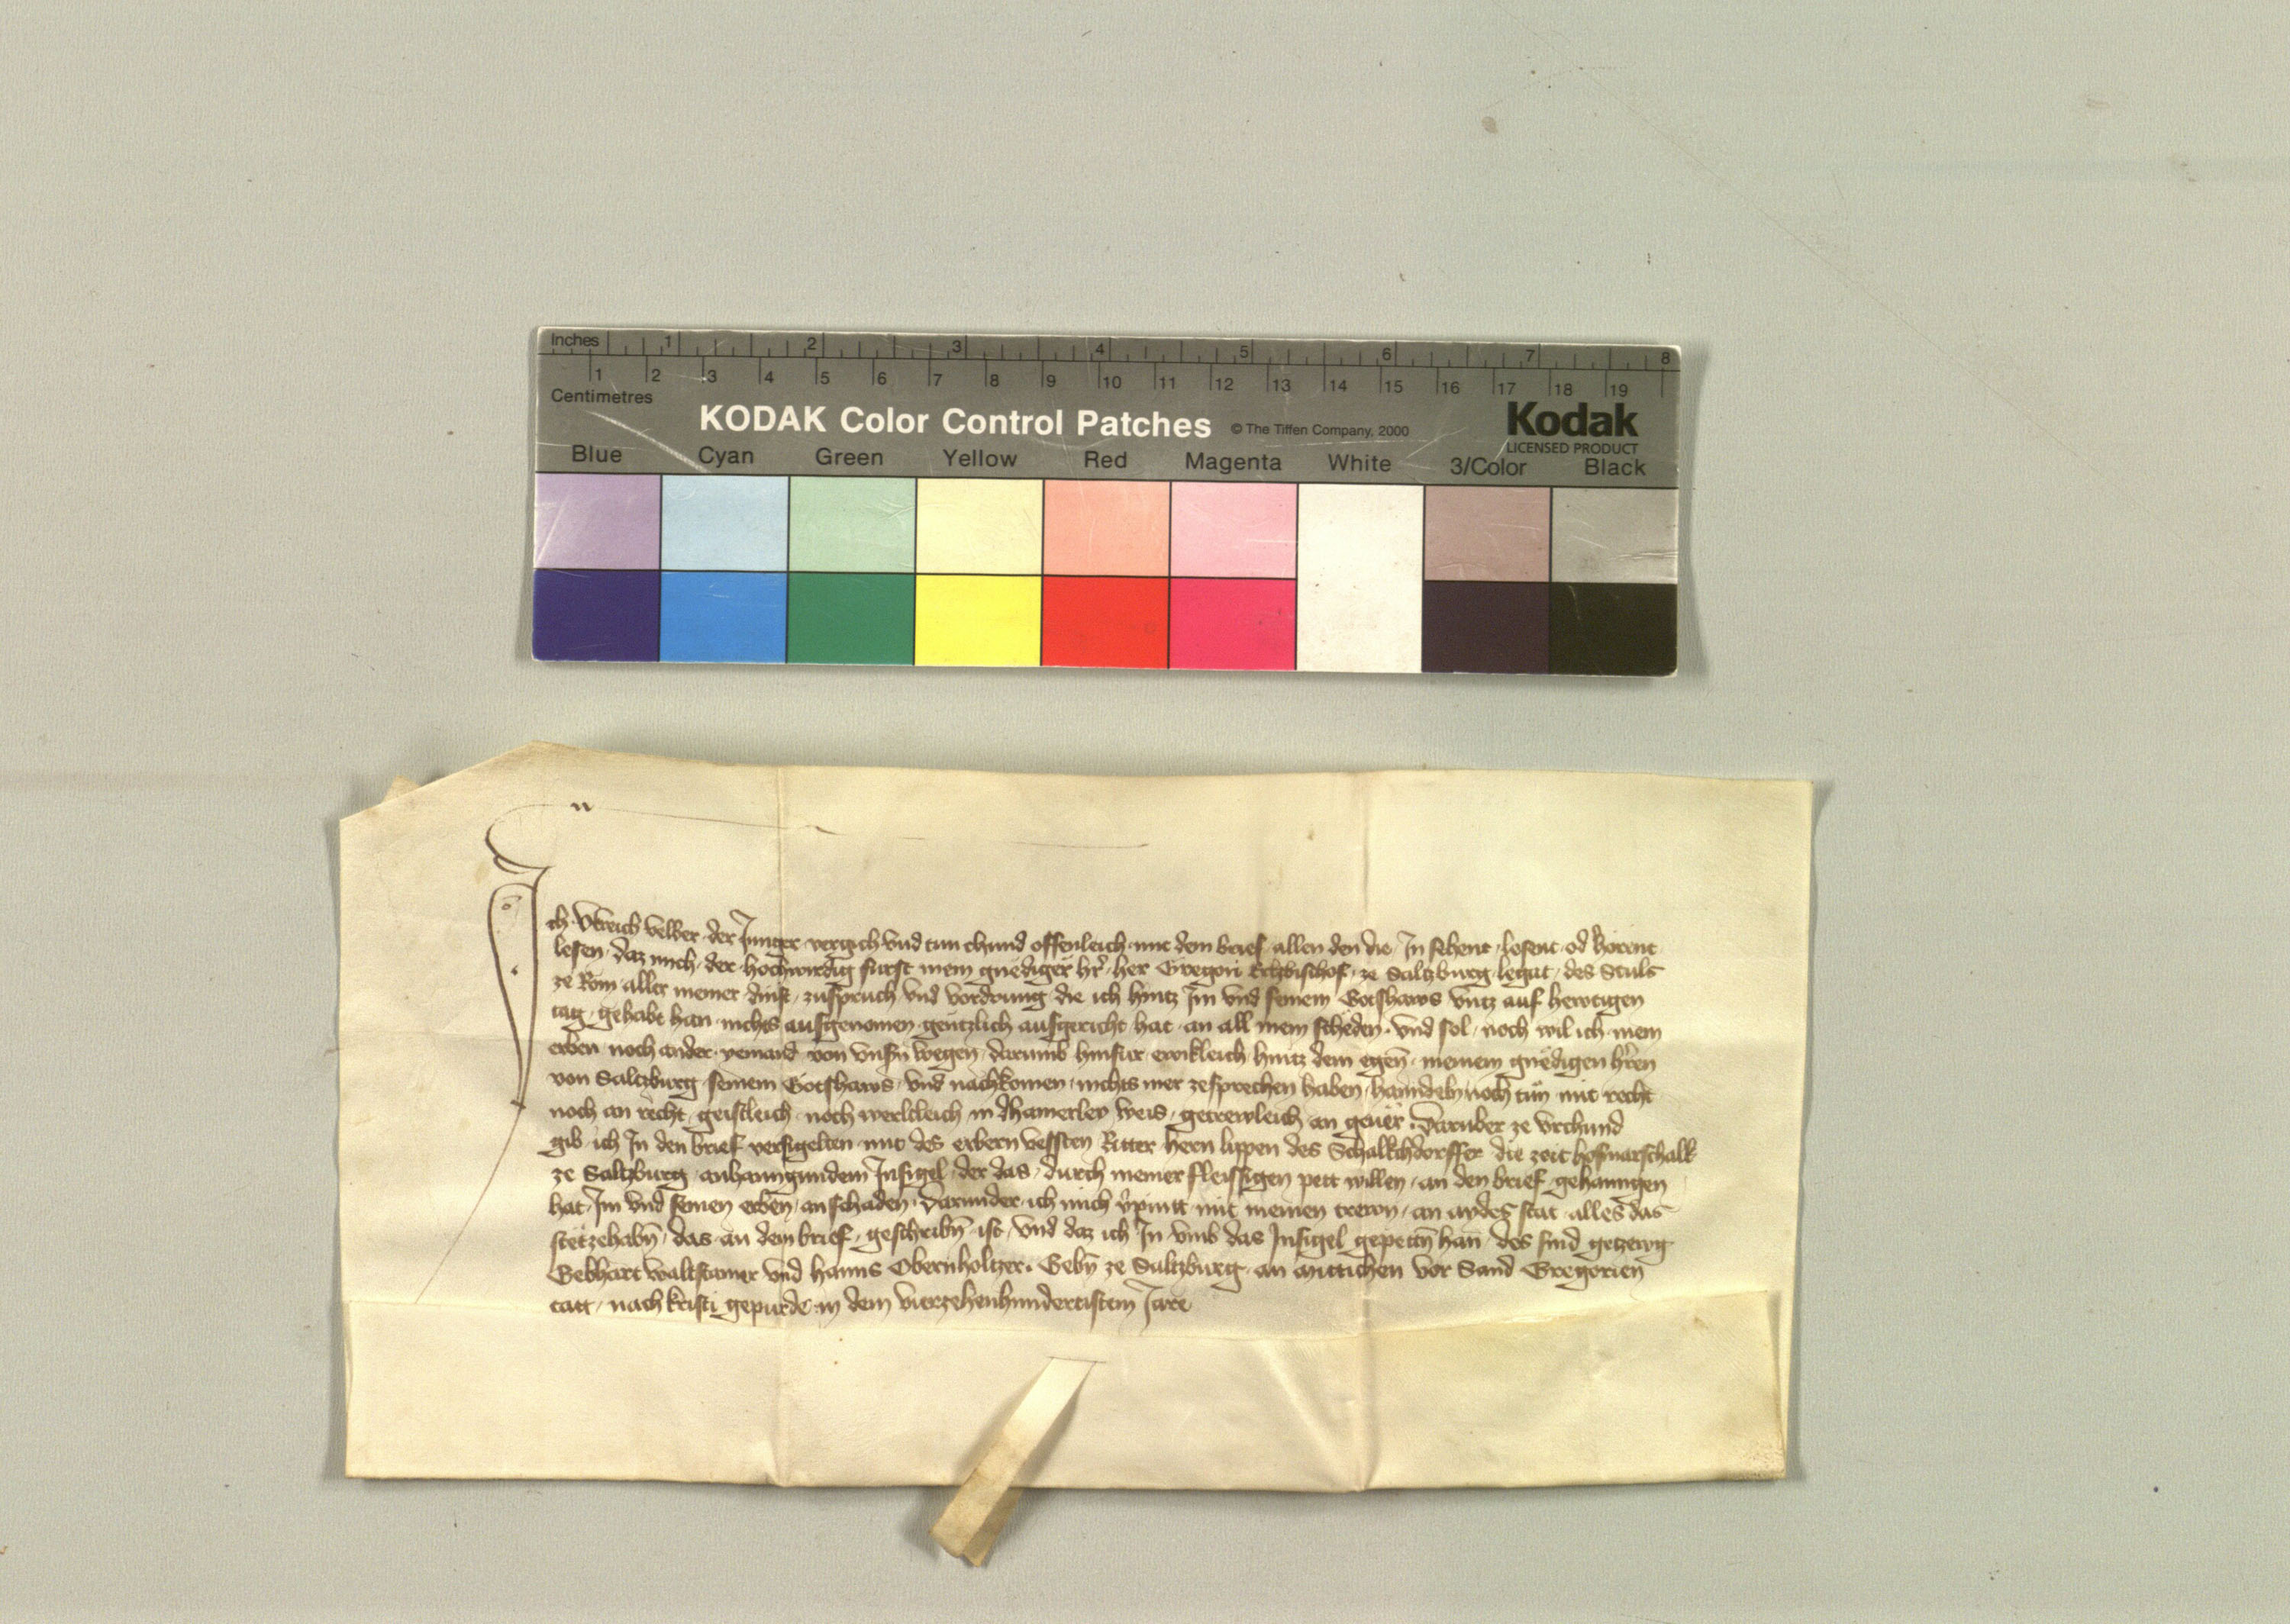 Inches 1 2 3 4 5 6 7 8
1 2 3 4 5 6 7 8 9 10 11 12 13 14 15 16 17 18 19
Centimetres
KODAK Color Control Patches © The Tiffen Company, 2000 Kodak
LICENSED PRODUCT
Blue Cyan Green Yellow Red Magenta White 3/Color Black
Ich Vlreich Velber der Junger vergich vnd tun chund offenleich mit dem brief allen den die In sehent lesent od hörent
lesen daz mich der hochwirdig furst mein gnediger hr̄ her Gregori Ertzbischof ze Saltzburg legat des Stuls
ze Rom aller meiner dinst zuspruch vnd vordrung die ich hintz Im vnd seinem Gotshaws vntz auf hewtigen
tag gehabt han nichts ausgenomen gentzlich ausgericht hat an all mein scheden vnd sol noch wil ich mein
erben noch ander yemand von vnsn̄ wegen darumb hinfur ewikleich hintz dem egen̄ meinem gnedigen hr̄en
von Saltzburg seinem Gotshaws vnd nachkomen nichts mer zesprechen haben hanndeln noch tun mit recht
noch an recht geistleich noch werltleich in dhainerley weis getrewleich an geuer Darüber ze vrchund
gib ich In den brief versigelten mit des erbern vessten Ritter hern lippen des Schalkchdorffer die zeit hofmarschalk
ze Saltzburg anhanngundem Insigel der das durch meiner fleissigen pett willen an den brief gehanngen
hat Im vnd seinen erben an schaden Darunder ich mich v̄pintt mit meinen trewn an aydes stat alles das
stet zehabn̄ das an dem brief geschribn̄ ist vnd daz ich In vmb das Insigel gepetn̄ han des sind getzewg
Gebhart waltstainer vnd hanns Obernholtzer Gebn̄ ze Saltzburg an Mittichen vor Sand Gregorien
tatt nach kristi gepurde in dem vierzehenhundertistem Jare